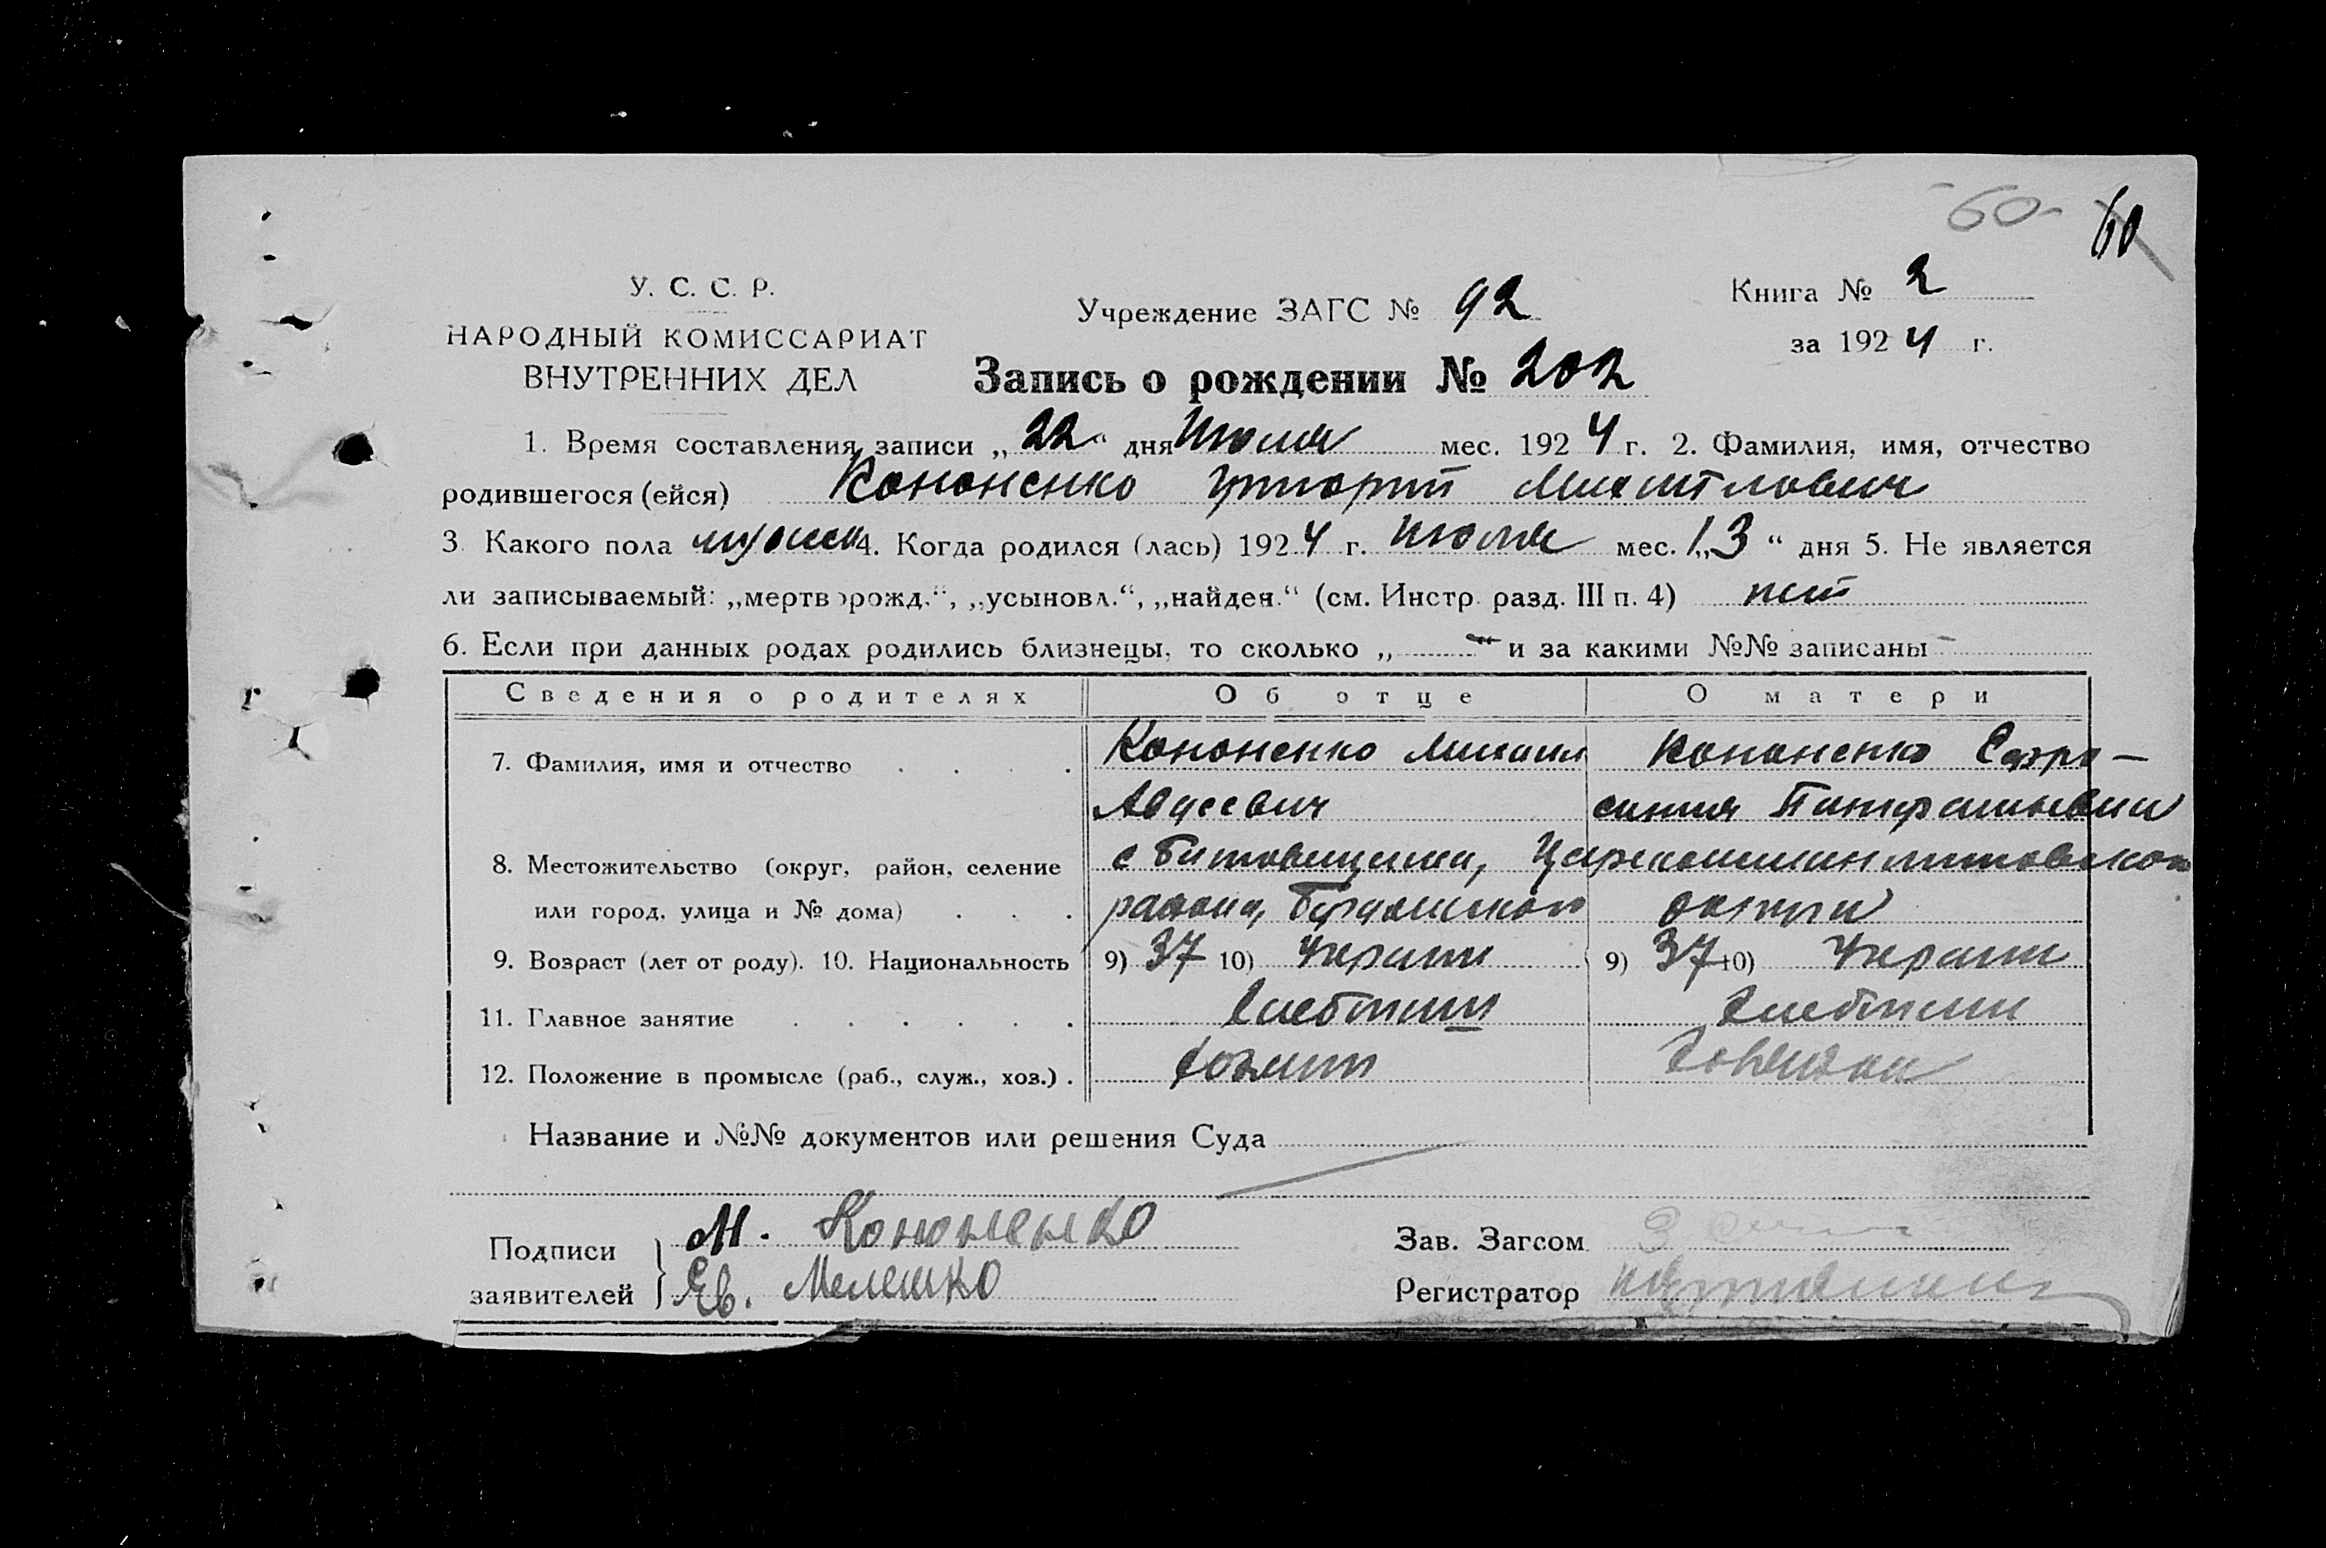 -60- 60
У. С. С. Р.
НАРОДНЫЙ КОМИССАРИАТ
ВНУТРЕННИХ ДЕЛ
Учреждение ЗАГС № 92
Книга № 2
за 1924 г.
Запись о рождении № 202
1. Время составления записи „22“ дня Июля мес. 1924 г. 2. Фамилия, имя, отчество
родившегося (ейся) Кононенко Михайлович
3. Какого пола мужск 4. Когда родился (лась) 1924 г. Июля мес. „13“ дня 5. Не является
ли записываемый: „мертворожд.“, „усыновл.“, „найден.“ (см. Инстр. разд. III п. 4) нет
6. Если при данных родах родились близнецы, то сколько „-“ и за какими №№ записаны -
Сведения о родителях Об отце О матери
7. Фамилия, имя и отчество . . . . Кононенко Михаил Кононенко Евфро-
синия
8. Местожительство (округ, район, селение с
или город, улица и № дома) . . . района, округи
9. Возраст (лет от роду). 10. Национальность 9) 37 10) Украин 9) 37 10) Украин
11. Главное занятие . . . . . . Хлебопаш Хлебопаш
12. Положение в промысле (раб., служ., хоз.) . Хозяин
Название и №№ документов или решения Суда
Подписи заявителей } М. Кононенко
Ев. Мелешко
Зав. Загсом
Регистратор